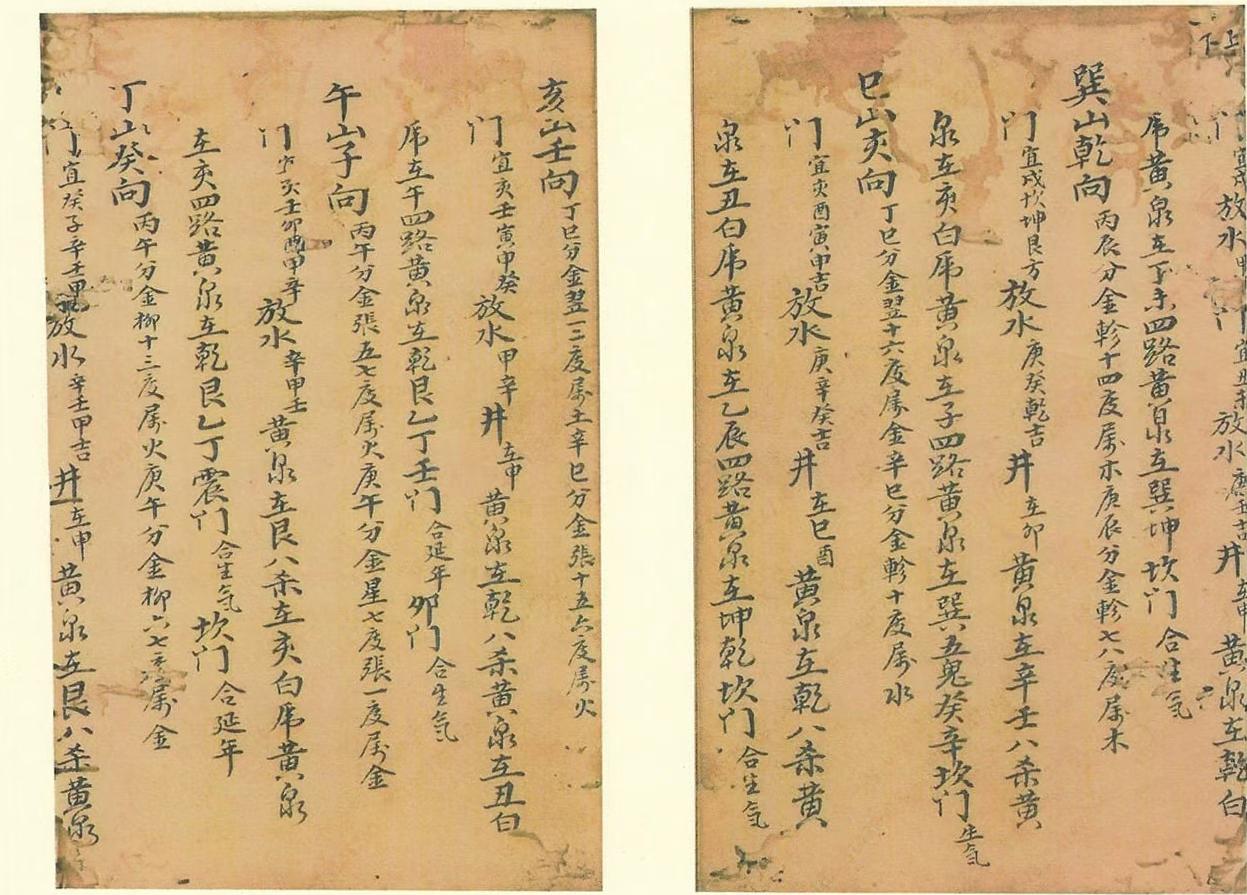 上下
门宜戌 放水甲 门宜丑未 放水庚壬吉 井在申 黄泉在乾白
虎黄泉在丁未四路黄泉在巽坤坎门合生气
巽山乾向丙辰分金轸十四度属木庚辰分金轸七八度属木
门宜戌坎坤艮方 放水庚癸乾吉 井在卯 黄泉在辛壬八杀黄
泉在亥白虎黄泉在子四路黄泉在巽五鬼癸辛坎门生气
巳山亥向丁巳分金翌十六度属金辛巳分金轸十度属水
门宜亥酉寅甲吉 放水庚辛癸吉 井在巳酉 黄泉在乾八杀黄
泉在丑白虎黄泉在乙辰四路黄泉在坤乾坎门合生气
亥山壬向丁巳分金翌一二度属土辛巳分金張十五六度属火
门宜亥壬寅甲癸 放水甲辛 井在申 黄泉在乾八杀黄泉在丑白
虎在午四路黄泉在乾艮乙丁壬门合延年卯门合生气
午山子向丙午分金張五七度属火庚午分金星七度張一度属金
门宜亥壬卯酉甲辛 放水辛甲壬 黄泉在艮八杀在亥白虎黄泉
在亥四路黄泉在乾艮乙丁震门合生气坎门合延年
丁山癸向丙午分金柳十三度属火庚午分金柳六七度属金
门宜癸子辛壬甲 放水辛壬甲吉 井在申 黄泉在艮八杀黄泉